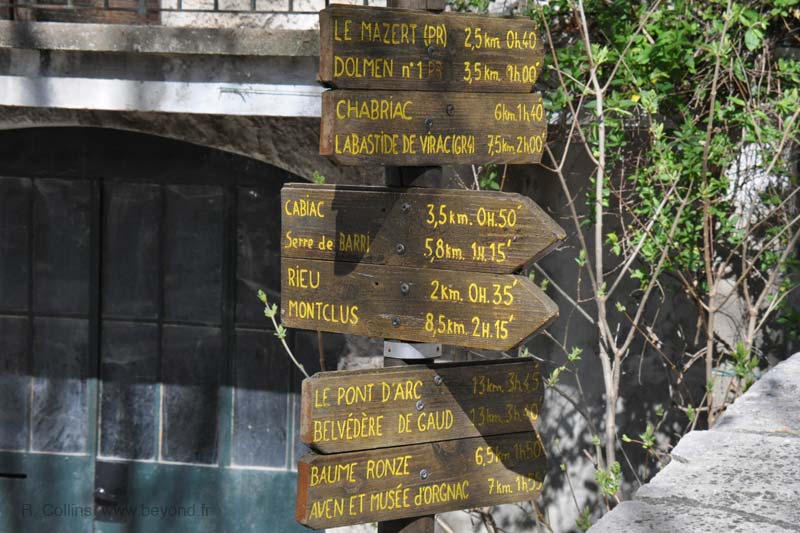 LE MAZERT (PR) 2,5km 0h40'
DOLMEN n°1 PR 3,5km 1h00'
CHABRIAC 6km 1h40'
LABASTIDE DE VIRAC(GR4) 7,5km 2h00'
CABIAC 3,5km. 0H.50'
Serre de BARRI 5,8km. 1H.15'
RIEU 2km 0H.35'
MONTCLUS 8,5km. 2H.15'
LE PONT D'ARC 13km 3h45'
BELVÉDÈRE DE GAUD 13km 3h40'
BAUME RONZE 6,5km 1h50'
AVEN ET MUSÉE D'ORGNAC 7km 1h55'
R. Collins www.beyond.fr